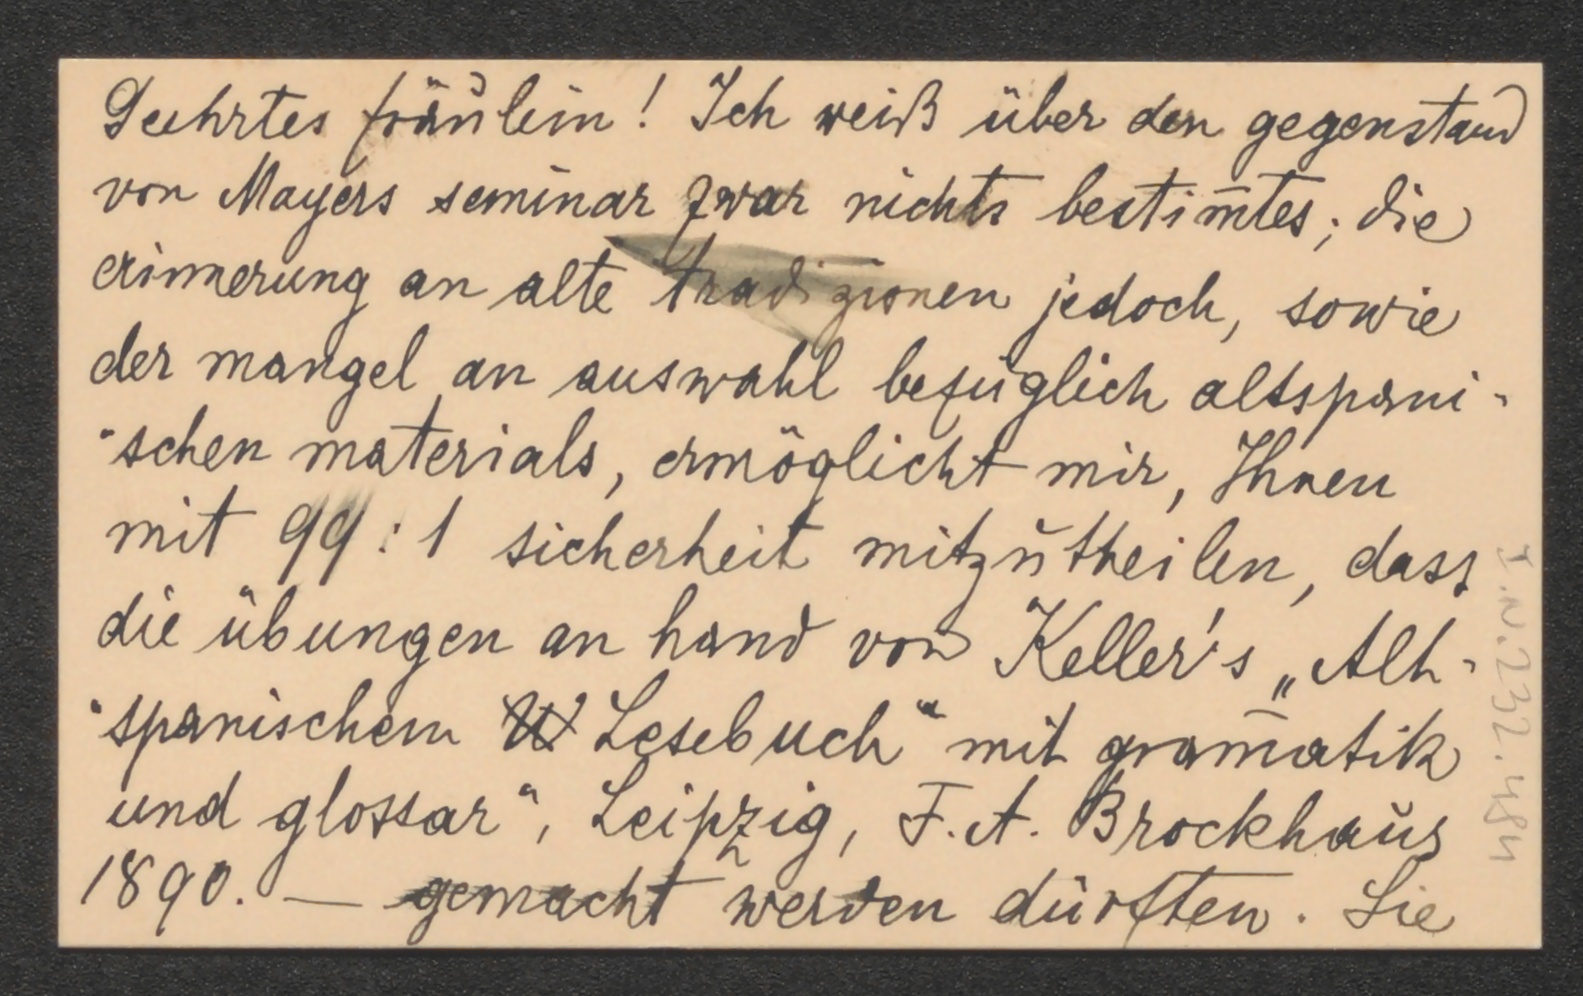 Geehrtes fräulein! Ich weiß über den gegenstand
von Mayers seminar zwar nichts bestim̄tes; die
erinnerung an alte tradizionen jedoch, sowie
der mangel an auswahl bezüglich altspani-
-schen materials, ermöglicht mir, Ihnen
mit 99:1 sicherheit mitzutheilen, dass
die übungen an hand von Keller's „Alt-
-spanischem Lesebuch“ mit gram̄atik
und glossar“, Leipzig, F. A. Brockhaus
1890. — gemacht werden dürften. Sie
I.N. 232.484